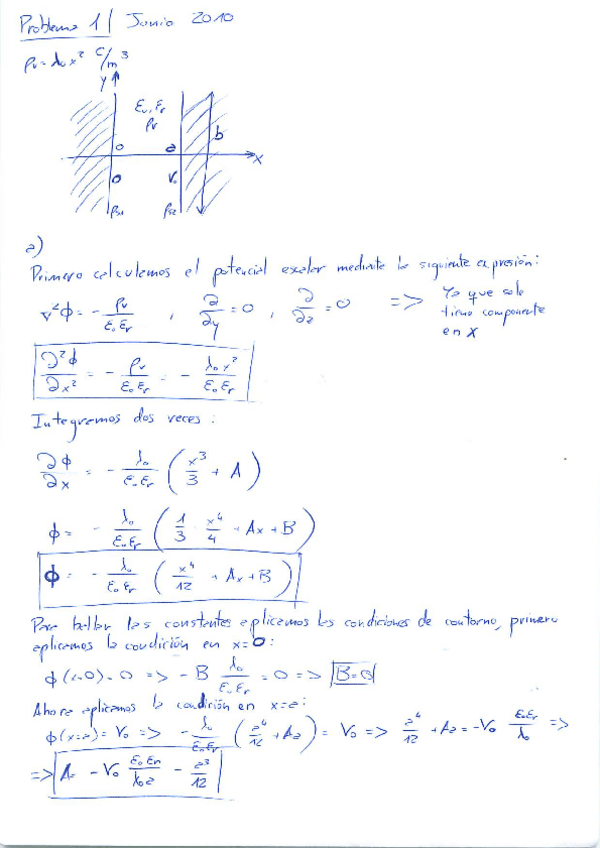 Problema 1 / Junio 2010
ρv = λ₀x² C/m³
y
ε₀, εr
ρv
b
0 a x
0 V₀
ρs1 ρs2
a)
Primero calculemos el potencial escalar mediante la siguiente expresión:
∇²φ = - ρv/ε₀εr , ∂/∂y = 0 , ∂/∂z = 0 => Ya que solo
tiene componente
en x
∂²φ/∂x² = - ρv/ε₀εr = - λ₀x²/ε₀εr
Integremos dos veces :
∂φ/∂x = - λ₀/ε₀εr (x³/3 + A)
φ = - λ₀/ε₀εr (1/3 · x⁴/4 + Ax + B)
φ = - λ₀/ε₀εr (x⁴/12 + Ax + B)
Para hallar las constantes aplicamos las condiciones de contorno, primero
aplicamos la condición en x=0:
φ(x=0) = 0 => - B λ₀/ε₀εr = 0 => B=0
Ahora aplicamos la condición en x=a:
φ(x=a) = V₀ => - λ₀/ε₀εr (a⁴/12 + Aa) = V₀ => a⁴/12 + Aa = -V₀ ε₀εr/λ₀ =>
=> A = -V₀ ε₀εr/λ₀a - a³/12